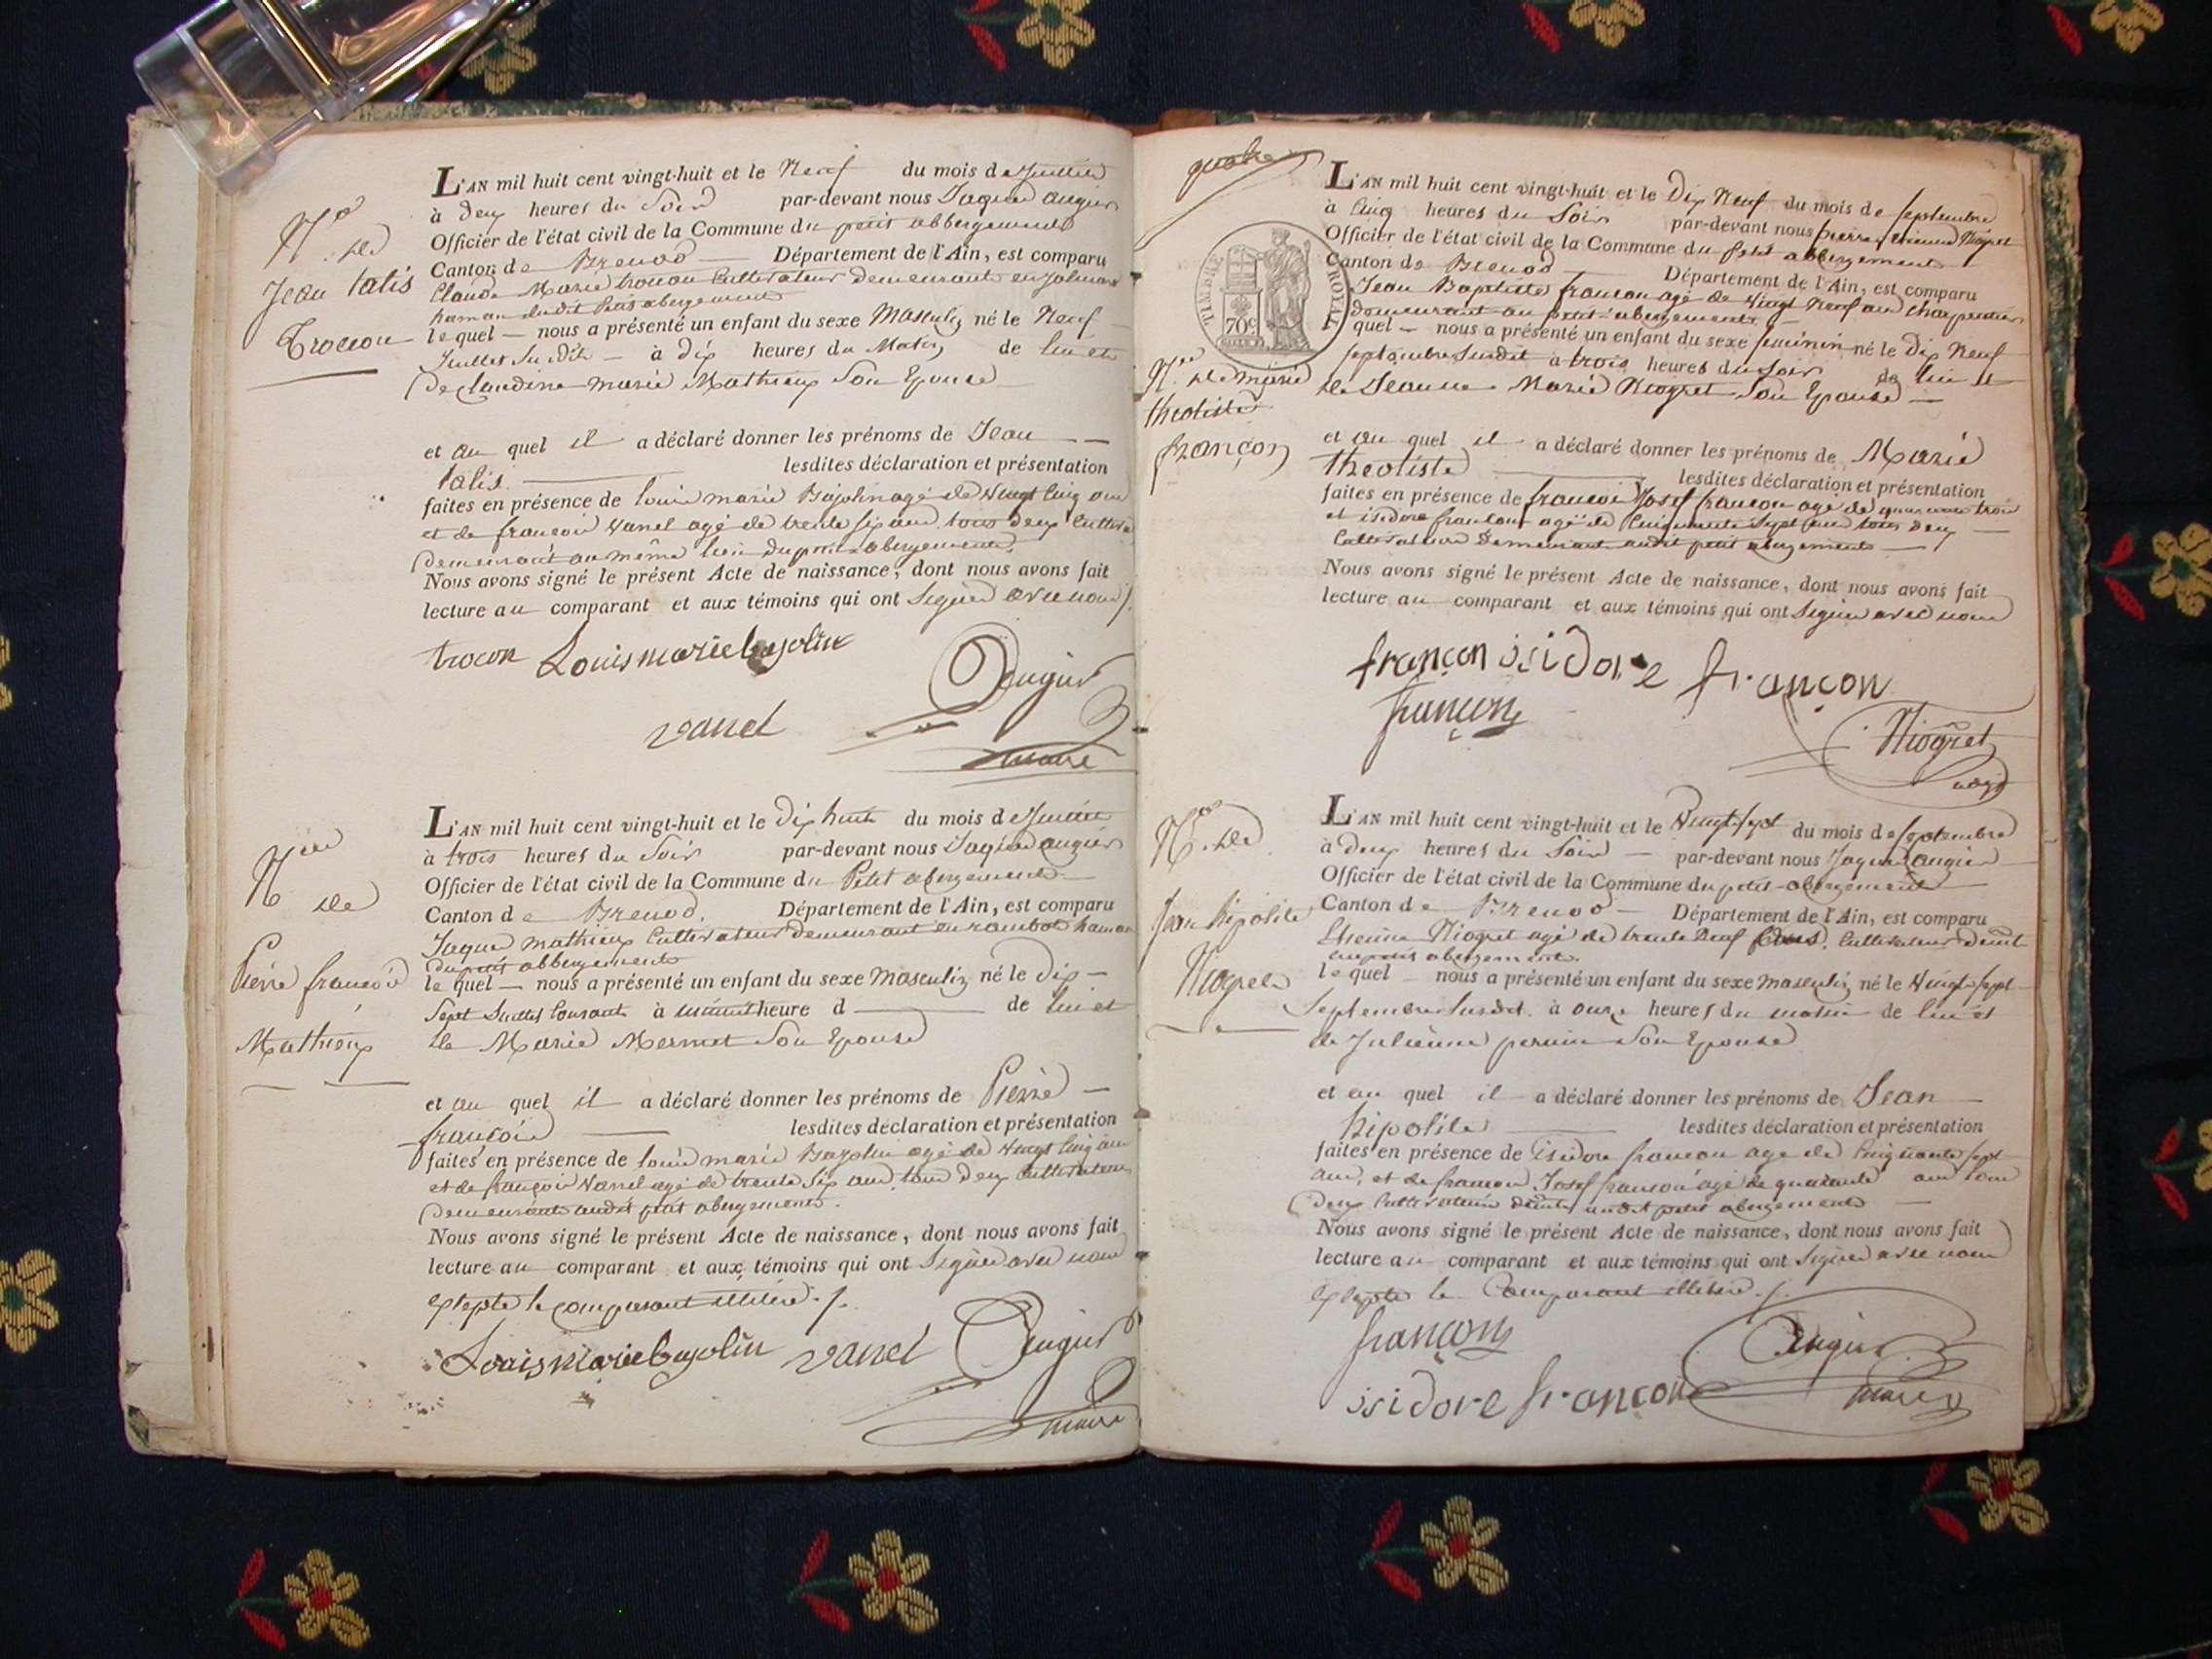 L'AN mil huit cent vingt-huit et le Neuf du mois de Juillet
à deux heures du Soir par-devant nous Jaques augier
Officier de l'état civil de la Commune du petit abbergement
Canton de Brenod Département de l'Ain, est comparu
Claude Marie trocon Cultivateur demeurant en
hamau dudit Petit abergement
le quel nous a présenté un enfant du sexe Masculin né le Neuf
Juillet Susdit à dix heures du Matin de lui et
De claudine marie Mathieux Son Epouse
et au quel il a déclaré donner les prénoms de Jean
talis lesdites déclaration et présentation
faites en présence de louis marie Bajolin agé de Vingt Cinq ans
et de francois Vanel agé de trente six ans tous deux Cultiv
Demeurant au même lieu du petit abergement
Nous avons signé le présent Acte de naissance, dont nous avons fait
lecture au comparant et aux témoins qui ont Signés avec nous
Nº de
Jean talis
Trocon
trocon Louis marie bajolin
Augier
vanel
maire
L'AN mil huit cent vingt-huit et le Dix huit du mois de Juillet
à trois heures du Soir par-devant nous Jaques augier
Officier de l'état civil de la Commune du Petit abergement
Canton de Brenod. Département de l'Ain, est comparu
Jaques mathieux Cultivateur demeurant en rambot hamau
du petit abbergement
le quel nous a présenté un enfant du sexe Masculin né le Dix
Sept Juillet Courant à minuit heure d de lui et
de Marie Mermet Son Epouse
et au quel il a déclaré donner les prénoms de Pierre
françois lesdites déclaration et présentation
faites en présence de louis marie Bajolin agé de Vingt Cinq ans
et de françois Vanel agé de trente Six ans tous deux Cultivateurs
Demeurants audit petit abergement.
Nous avons signé le présent Acte de naissance, dont nous avons fait
lecture au comparant et aux témoins qui ont Signés avec nous
Excepté le comparant illitéré
Nce de
Pierre francois
Mathieux
Louis marie bajolin vanel Augier
maire
quatre
TIMBRE ROYAL
70c
L'AN mil huit cent vingt-huit et le Dix Neuf du mois de Septembre
à Cinq heures du Soir par-devant nous pierre etienne Niogret
Officier de l'état civil de la Commune du Petit abbergement
Canton de Brenod Département de l'Ain, est comparu
Jean Baptiste francon agé de Vingt Neuf ans Charpentier
demeurant au petit abergement
quel nous a présenté un enfant du sexe feminin né le Dix Neuf
Septembre Susdit à trois heures du Soir de lui et
de Jeanne Marie Niogret Son Epouse
et au quel il a déclaré donner les prénoms de Marie
theotiste lesdites déclaration et présentation
faites en présence de francois Josef francon agé de quarante trois
et isidore francon agé de Cinquante Sept ans tous deux
Cultivateurs Demeurant audit petit abergement
Nous avons signé le présent Acte de naissance, dont nous avons fait
lecture au comparant et aux témoins qui ont Signés avec nous
Nce de marie
theotiste
françon
françon issidore françon
françon
Niogret
L'AN mil huit cent vingt-huit et le Vingt Sept du mois de Septembre
à deux heures du Soir par-devant nous Jaques augier
Officier de l'état civil de la Commune du petit abergement
Canton de Brenod Département de l'Ain, est comparu
Etienne Niogret agé de trente Neuf Cultivateur demt
au petit abergement.
le quel nous a présenté un enfant du sexe Masculin né le Vingt Sept
Septembre Susdit à onze heures du matin de lui et
de Julienne Son Epouse
et au quel il a déclaré donner les prénoms de Jean
hipolite lesdites déclaration et présentation
faites en présence de isidore francon agé de Cinquante Sept
ans, et de francois Josef francon agé de quarante ans tous
deux Cultivateurs demts audit petit abergement
Nous avons signé le présent Acte de naissance, dont nous avons fait
lecture au comparant et aux témoins qui ont Signés avec nous
Excepté le Comparant illitéré
Nce de
Jean hipolite
Niogret
françon
Augier
issidore françon
maire